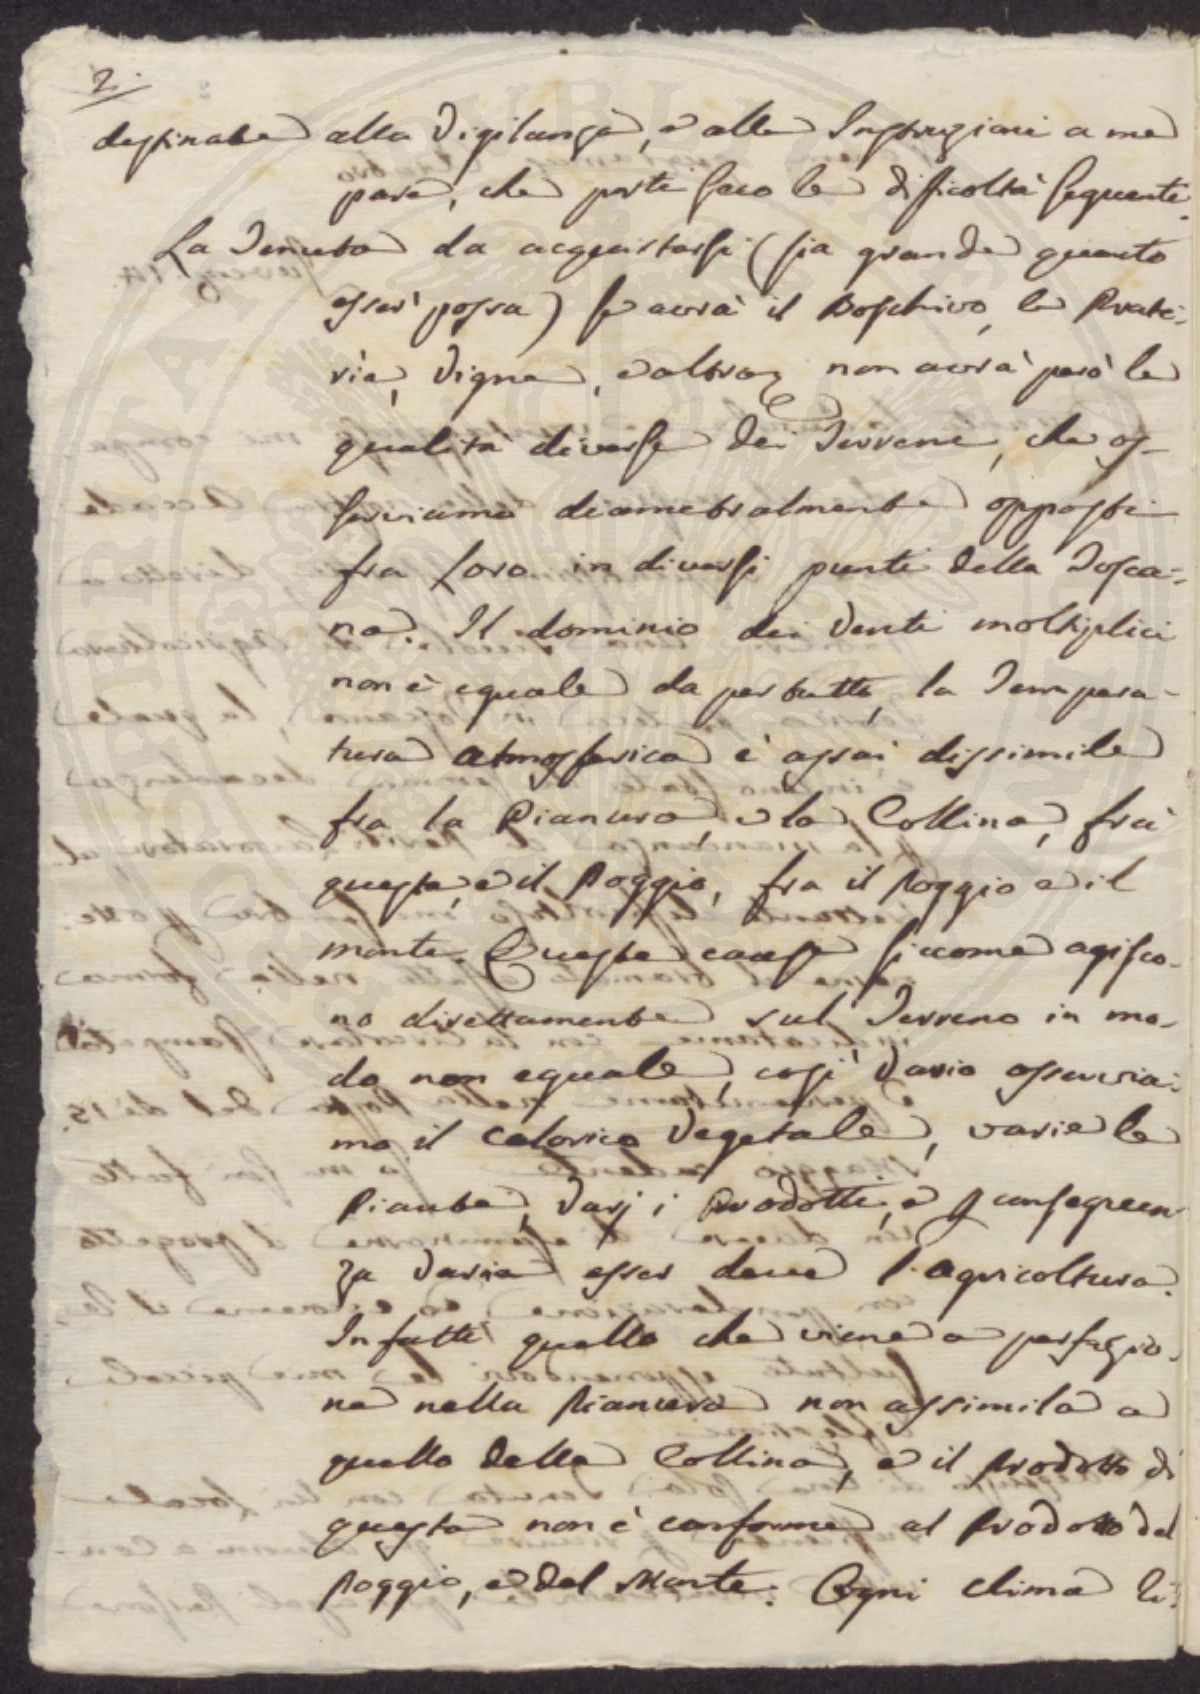 2.
destinate alla Vigilanza, e alle Instruzioni a me
pare, che porti seco le difficoltà seguenti.
La Tenuta da acquistarsi (sia grande quanto
esser possa) se avrà il Boschivo, le Prate-
rie, Vigne, e altro, non avrà però le
qualità diverse dei Terreni, che os-
serviamo diametralmente opposti
fra loro in diversi punti della Tosca-
na. Il dominio dei Venti moltiplici
non è eguale da per tutto, la Tempera-
tura atmosferica è assai dissimile
fra la Pianura, e la Collina, fra
questa, e il Poggio, fra il Poggio e il
monte. Queste cause siccome agisco-
no direttamente sul Terreno in mo-
do non eguale, così vario osservia-
mo il calorico Vegetale, varie le
Piante, varj i Prodotti, e p conseguen
za varia esser deve l'agricoltura.
Infatti quello che viene a perfezio-
ne nella Pianura non assimila a
quello della Collina, e il Prodotto di
questa non è conforme al Prodotto del
Poggio, e del Monte. Ogni clima li-